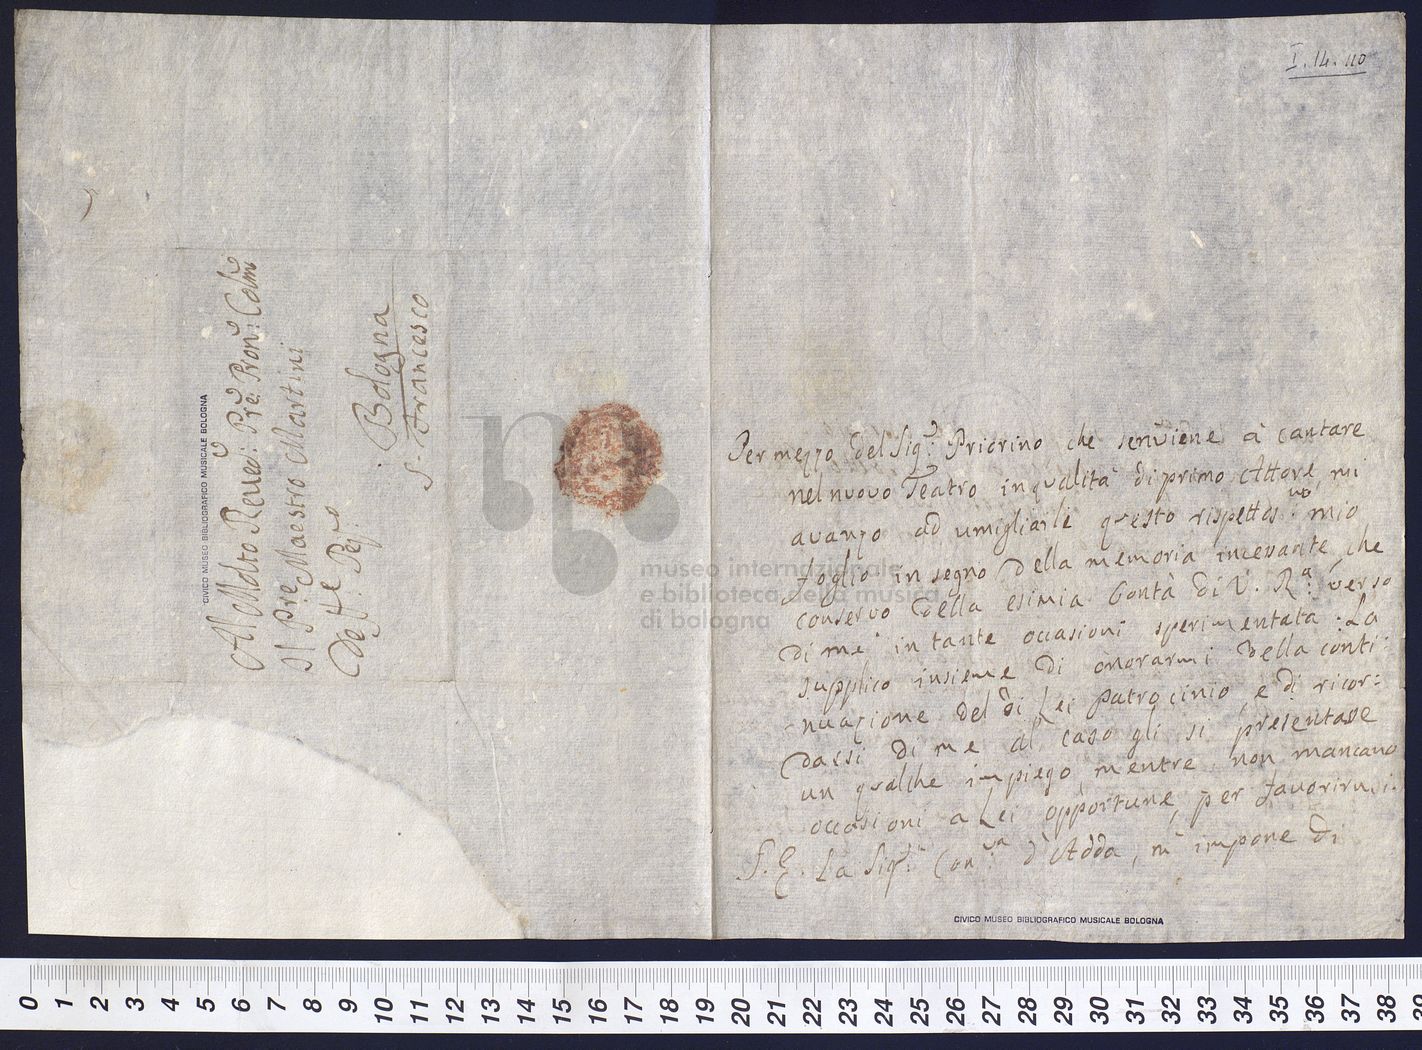 I. 14. 110
Al Molto Revd: Pre: Pron: Colmo
Il Pre Maestro Martini
Bologna
S. Francesco
CIVICO MUSEO BIBLIOGRAFICO MUSICALE BOLOGNA
Per mezzo del Sigr. Priorino che sen viene à cantare
nel nuovo Teatro in qualità di primo Attore, mi
avanzo ad umigliarle questo rispettosmo mio
foglio in segno della memoria incevante che
conservo della esimia bontà di V. Ra: verso
di me in tante occasioni sperimentata. La
supplico insieme di onorarmi della conti:
nuazione del di Lei patrocinio, e di ricor:
darsi di me al caso gli si presentase
un qualche impiego mentre non mancano
occasioni a Lei opportune, per favorirmi.
S. E. La Sigra Conua d'Adda, m'impone di
CIVICO MUSEO BIBLIOGRAFICO MUSICALE BOLOGNA
museo internazionale
e biblioteca della musica
di bologna
0 1 2 3 4 5 6 7 8 9 10 11 12 13 14 15 16 17 18 19 20 21 22 23 24 25 26 27 28 29 30 31 32 33 34 35 36 37 38